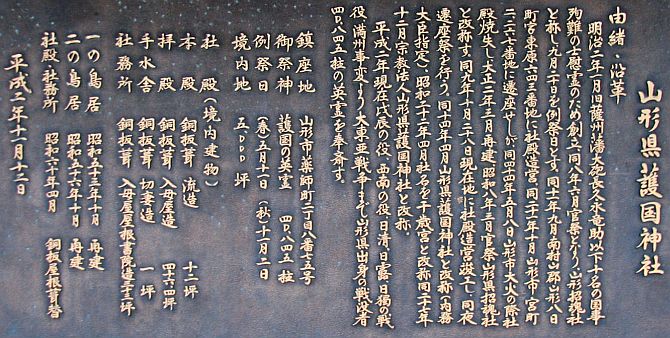 山形県護国神社
由緒・沿革
明治二年一月旧薩州藩大砲長久永竜助以下十名の国事
殉難の士慰霊のため創立同八年六月官祭となり山形招魂社
と称し九月二十日を例祭日とす。同十二年九月南村山郡山形八日
町宮東原六四三番地に社殿造営同二十二年十月山形市宮町
二六六番地に遷座せしが同四十四年五月八日山形市大火の際社
殿焼失し大正二年三月再建 昭和八年三月官祭山形県招魂社
と改称す。同九年十月三十日現在地に社殿造営竣工し同夜
遷座祭を行う。同十四年四月山形県護国神社と改称(内務
大臣指定)。昭和二十二年四月社名を千歳宮と改称同二十七年
十二月宗教法人山形県護国神社と改称。
平成二年現在戊辰の役、西南の役、日清、日露、日独の戦
役、満州事変より大東亜戦争まで山形県出身の戦歿者
四〇、八四五柱の英霊を奉斎す。
鎮座地 山形市薬師町二丁目八番七五号
御祭神 護国の英霊 四〇、八四五柱
例祭日 (春)五月十一日 (秋)十月二日
境内地 五、〇〇〇坪
社殿(境内建物)
本殿 銅板葺 流造 十二坪
拝殿 銅板葺 入母屋造 四十六・四坪
手水舎 銅板葺 切妻造 一坪
社務所 銅板葺 入母屋屋根書院造
一の鳥居 昭和五十三年十月 再建
二の鳥居 昭和五十六年十月 再建
社殿、社務所 昭和六十年四月 銅板屋根葺替
平成二年十一月十二日